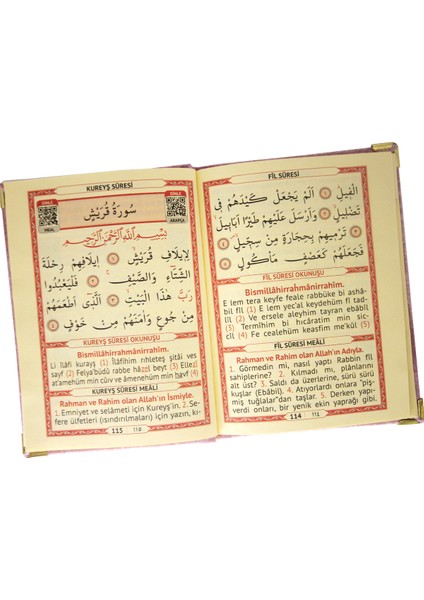 FİL SÛRESİ
الْفِيلِ ﴿١﴾ اَلَمْ يَجْعَلْ كَيْدَهُمْ فِى
تَضْلِيلٍ ﴿٢﴾ وَاَرْسَلَ عَلَيْهِمْ طَيْرًا اَبَابِيلَ
﴿٣﴾ تَرْمِيهِمْ بِحِجَارَةٍ مِنْ سِجِّيلٍ ﴿٤﴾
فَجَعَلَهُمْ كَعَصْفٍ مَاْكُولٍ ﴿٥﴾
FİL SÛRESİ OKUNUŞU
Bismillâhirrahmânirrahîm.
E lem tera keyfe feale rabbüke bi ashâ-
bil fîl (1) E lem yec'al keydehüm fî tad-
lîl (2) Ve ersele aleyhim tayran ebâbîl
(3) Termîhim bi hıcâratin min sic-
cîl (4) Fe cealehüm keasfin me'kûl (5)
FİL SÛRESİ MEÂLİ
Rahman ve Rahim olan Allah'ın Adıyla.
1. Görmedin mi, nasıl yaptı Rabbin fîl
sahiplerine? 2. Kılmadı mı, planlarını
alt üst? 3. Saldı da üzerlerine, sürü sürü
kuşlar (Ebâbil). 4. Atıyorlardı onlara "piş-
miş tuğlalar"dan taşlar. 5. Derken yapı-
verdi onları, bir yenik ekin yaprağı gibi.
114 ١١٤
KUREYŞ SÛRESİ
DİNLE
MEAL
سُورَةُ قُرَيْشٍ
DİNLE
ARAPÇA
بِسْمِ اللّٰهِ الرَّحْمٰنِ الرَّحِيمِ
لِاِيلَافِ قُرَيْشٍ ﴿١﴾ اِيلَافِهِمْ رِحْلَةَ
الشِّتَاءِ وَالصَّيْفِ ﴿٢﴾ فَلْيَعْبُدُوا
رَبَّ هٰذَا الْبَيْتِ ﴿٣﴾ اَلَّذِى اَطْعَمَهُمْ
مِنْ جُوعٍ وَاٰمَنَهُمْ مِنْ خَوْفٍ ﴿٤﴾
KUREYŞ SÛRESİ OKUNUŞU
Bismillâhirrahmânirrahîm.
Li îlâfi kurayş (1) Îlâfihim rıhleteş şitâi ves
sayf (2) Felya'büdû rabbe hâzel beyt (3) Ellezî
at'amehüm min cûiv ve âmenehüm min havf (4)
KUREYŞ SÛRESİ MEÂLİ
Rahman ve Rahim olan Allah'ın İsmiyle.
1. Emniyet ve selâmeti için Kureyş'in. 2. Se-
fere ülfetleri (ısındırılmaları) için yazın, kı-
115 ١١٥